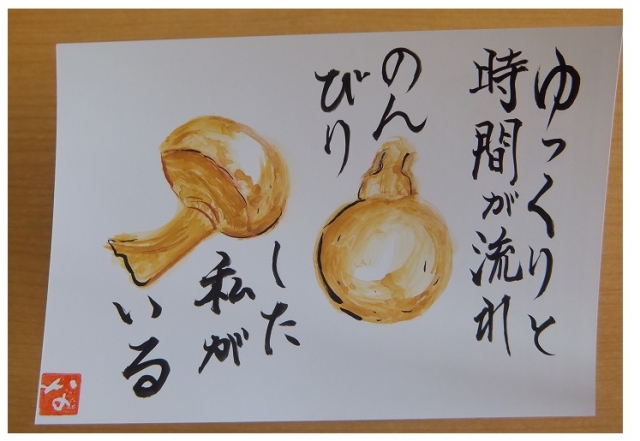 ゆっくりと
時間が流れ
のん
びり
した
私が
いる
な